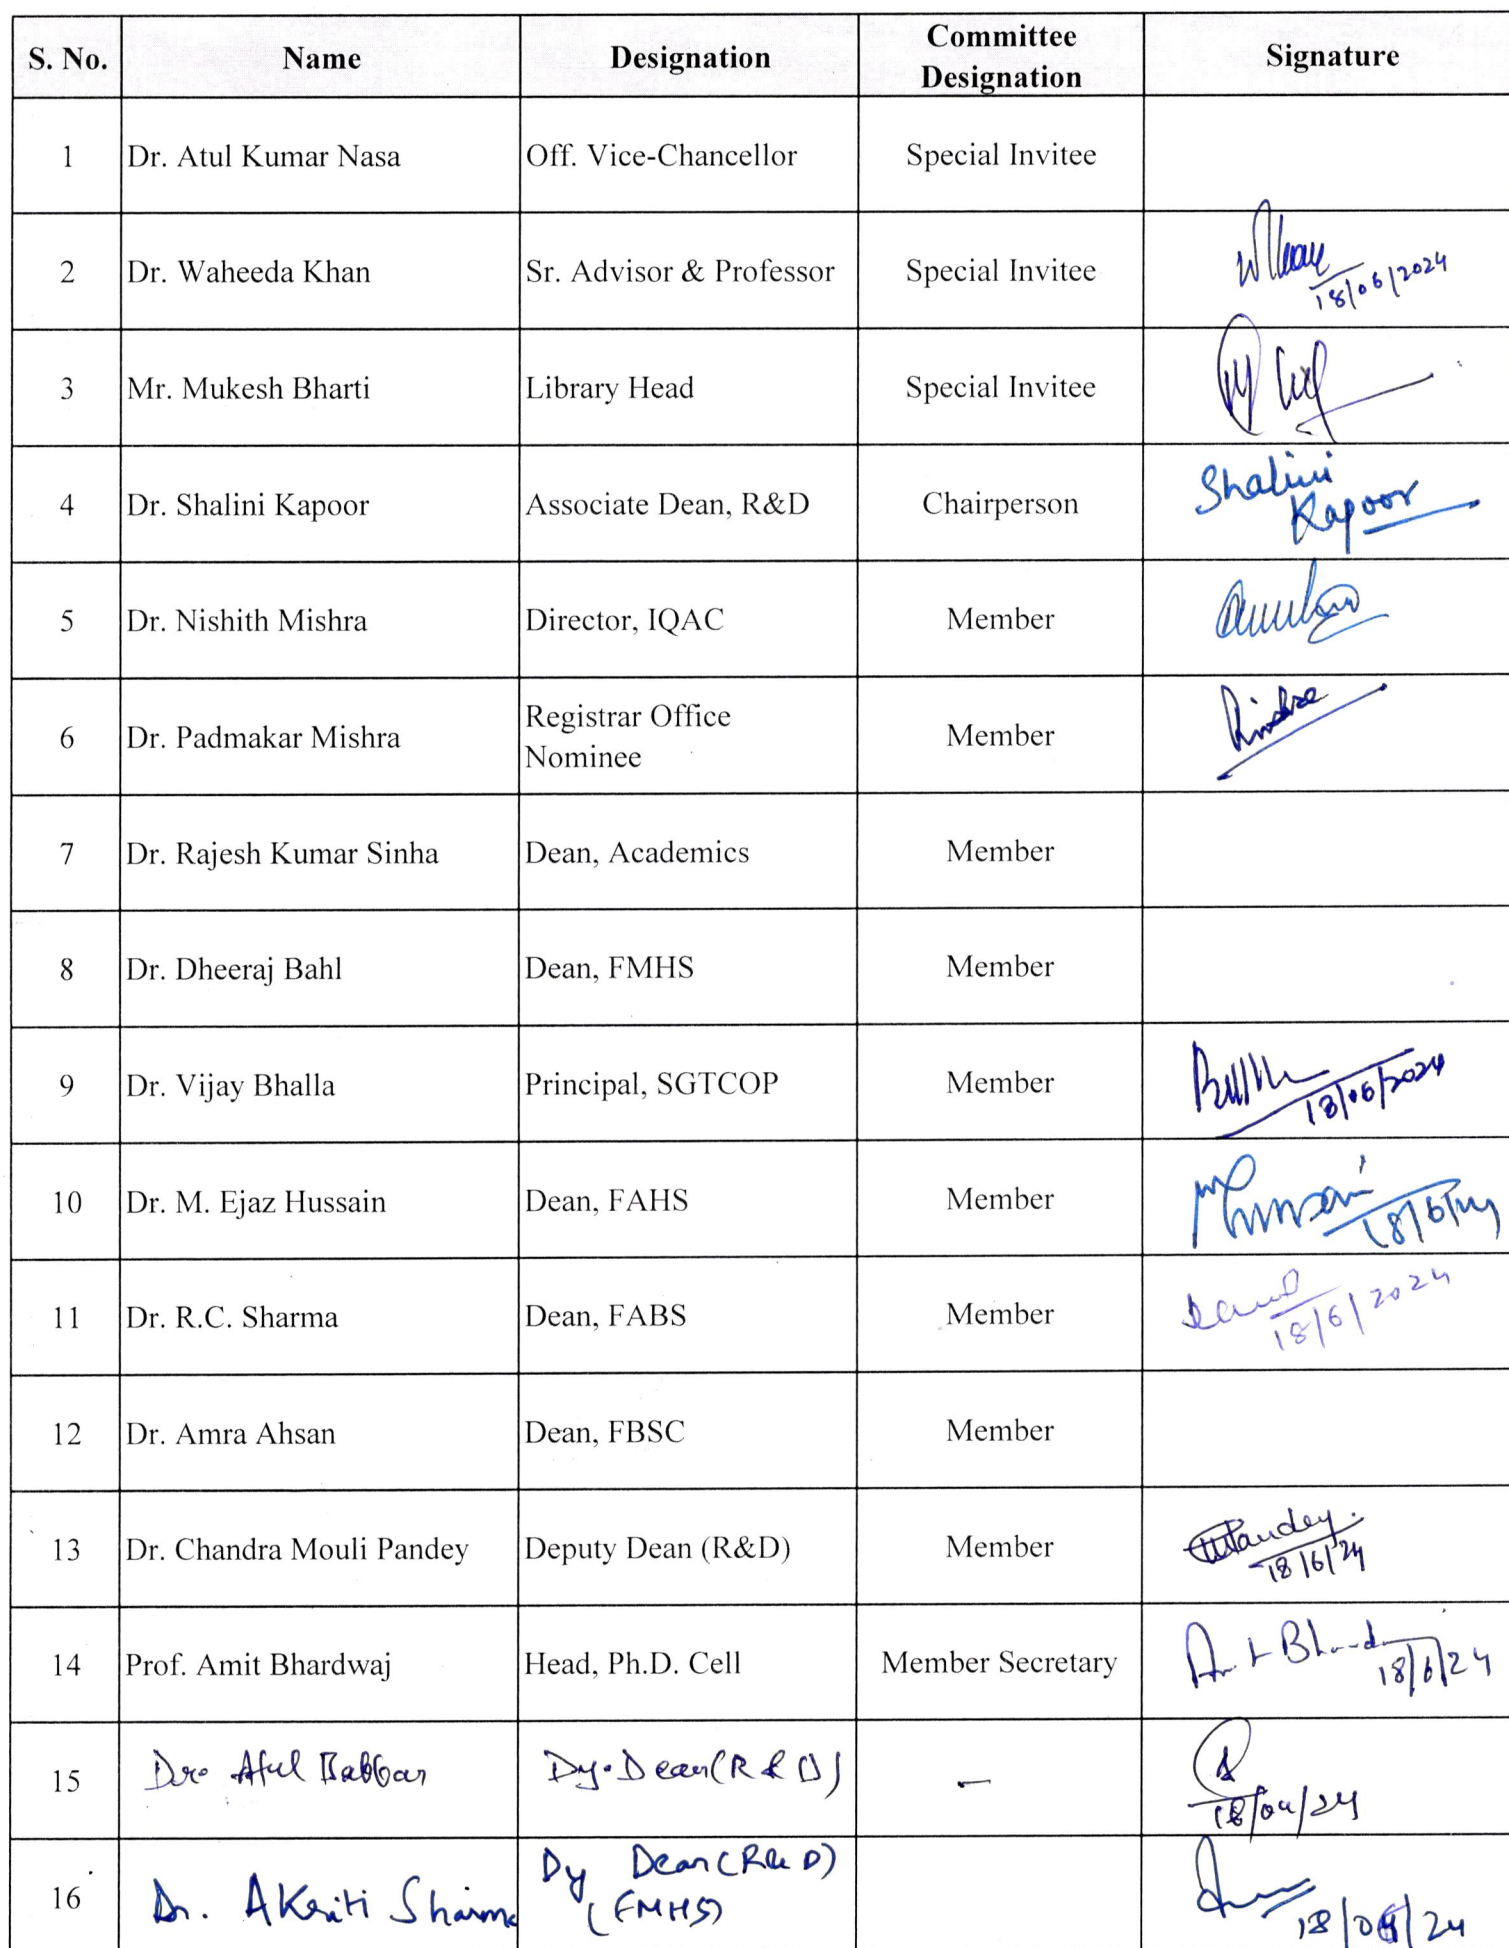 S. No. Name Designation Committee Designation Signature
1 Dr. Atul Kumar Nasa Off. Vice-Chancellor Special Invitee
2 Dr. Waheeda Khan Sr. Advisor & Professor Special Invitee 18/06/2024
3 Mr. Mukesh Bharti Library Head Special Invitee
4 Dr. Shalini Kapoor Associate Dean, R&D Chairperson Shalini Kapoor
5 Dr. Nishith Mishra Director, IQAC Member
6 Dr. Padmakar Mishra Registrar Office Nominee Member
7 Dr. Rajesh Kumar Sinha Dean, Academics Member
8 Dr. Dheeraj Bahl Dean, FMHS Member
9 Dr. Vijay Bhalla Principal, SGTCOP Member 18/06/2024
10 Dr. M. Ejaz Hussain Dean, FAHS Member 18/6/24
11 Dr. R.C. Sharma Dean, FABS Member 18/6/2024
12 Dr. Amra Ahsan Dean, FBSC Member
13 Dr. Chandra Mouli Pandey Deputy Dean (R&D) Member CMPandey 18/6/24
14 Prof. Amit Bhardwaj Head, Ph.D. Cell Member Secretary 18/6/24
15 Dr. Atul Babbar Dy. Dean (R & D) - 18/04/24
16 Dr. Akriti Sharma Dy Dean (R & D) (FMHS) 18/06/24